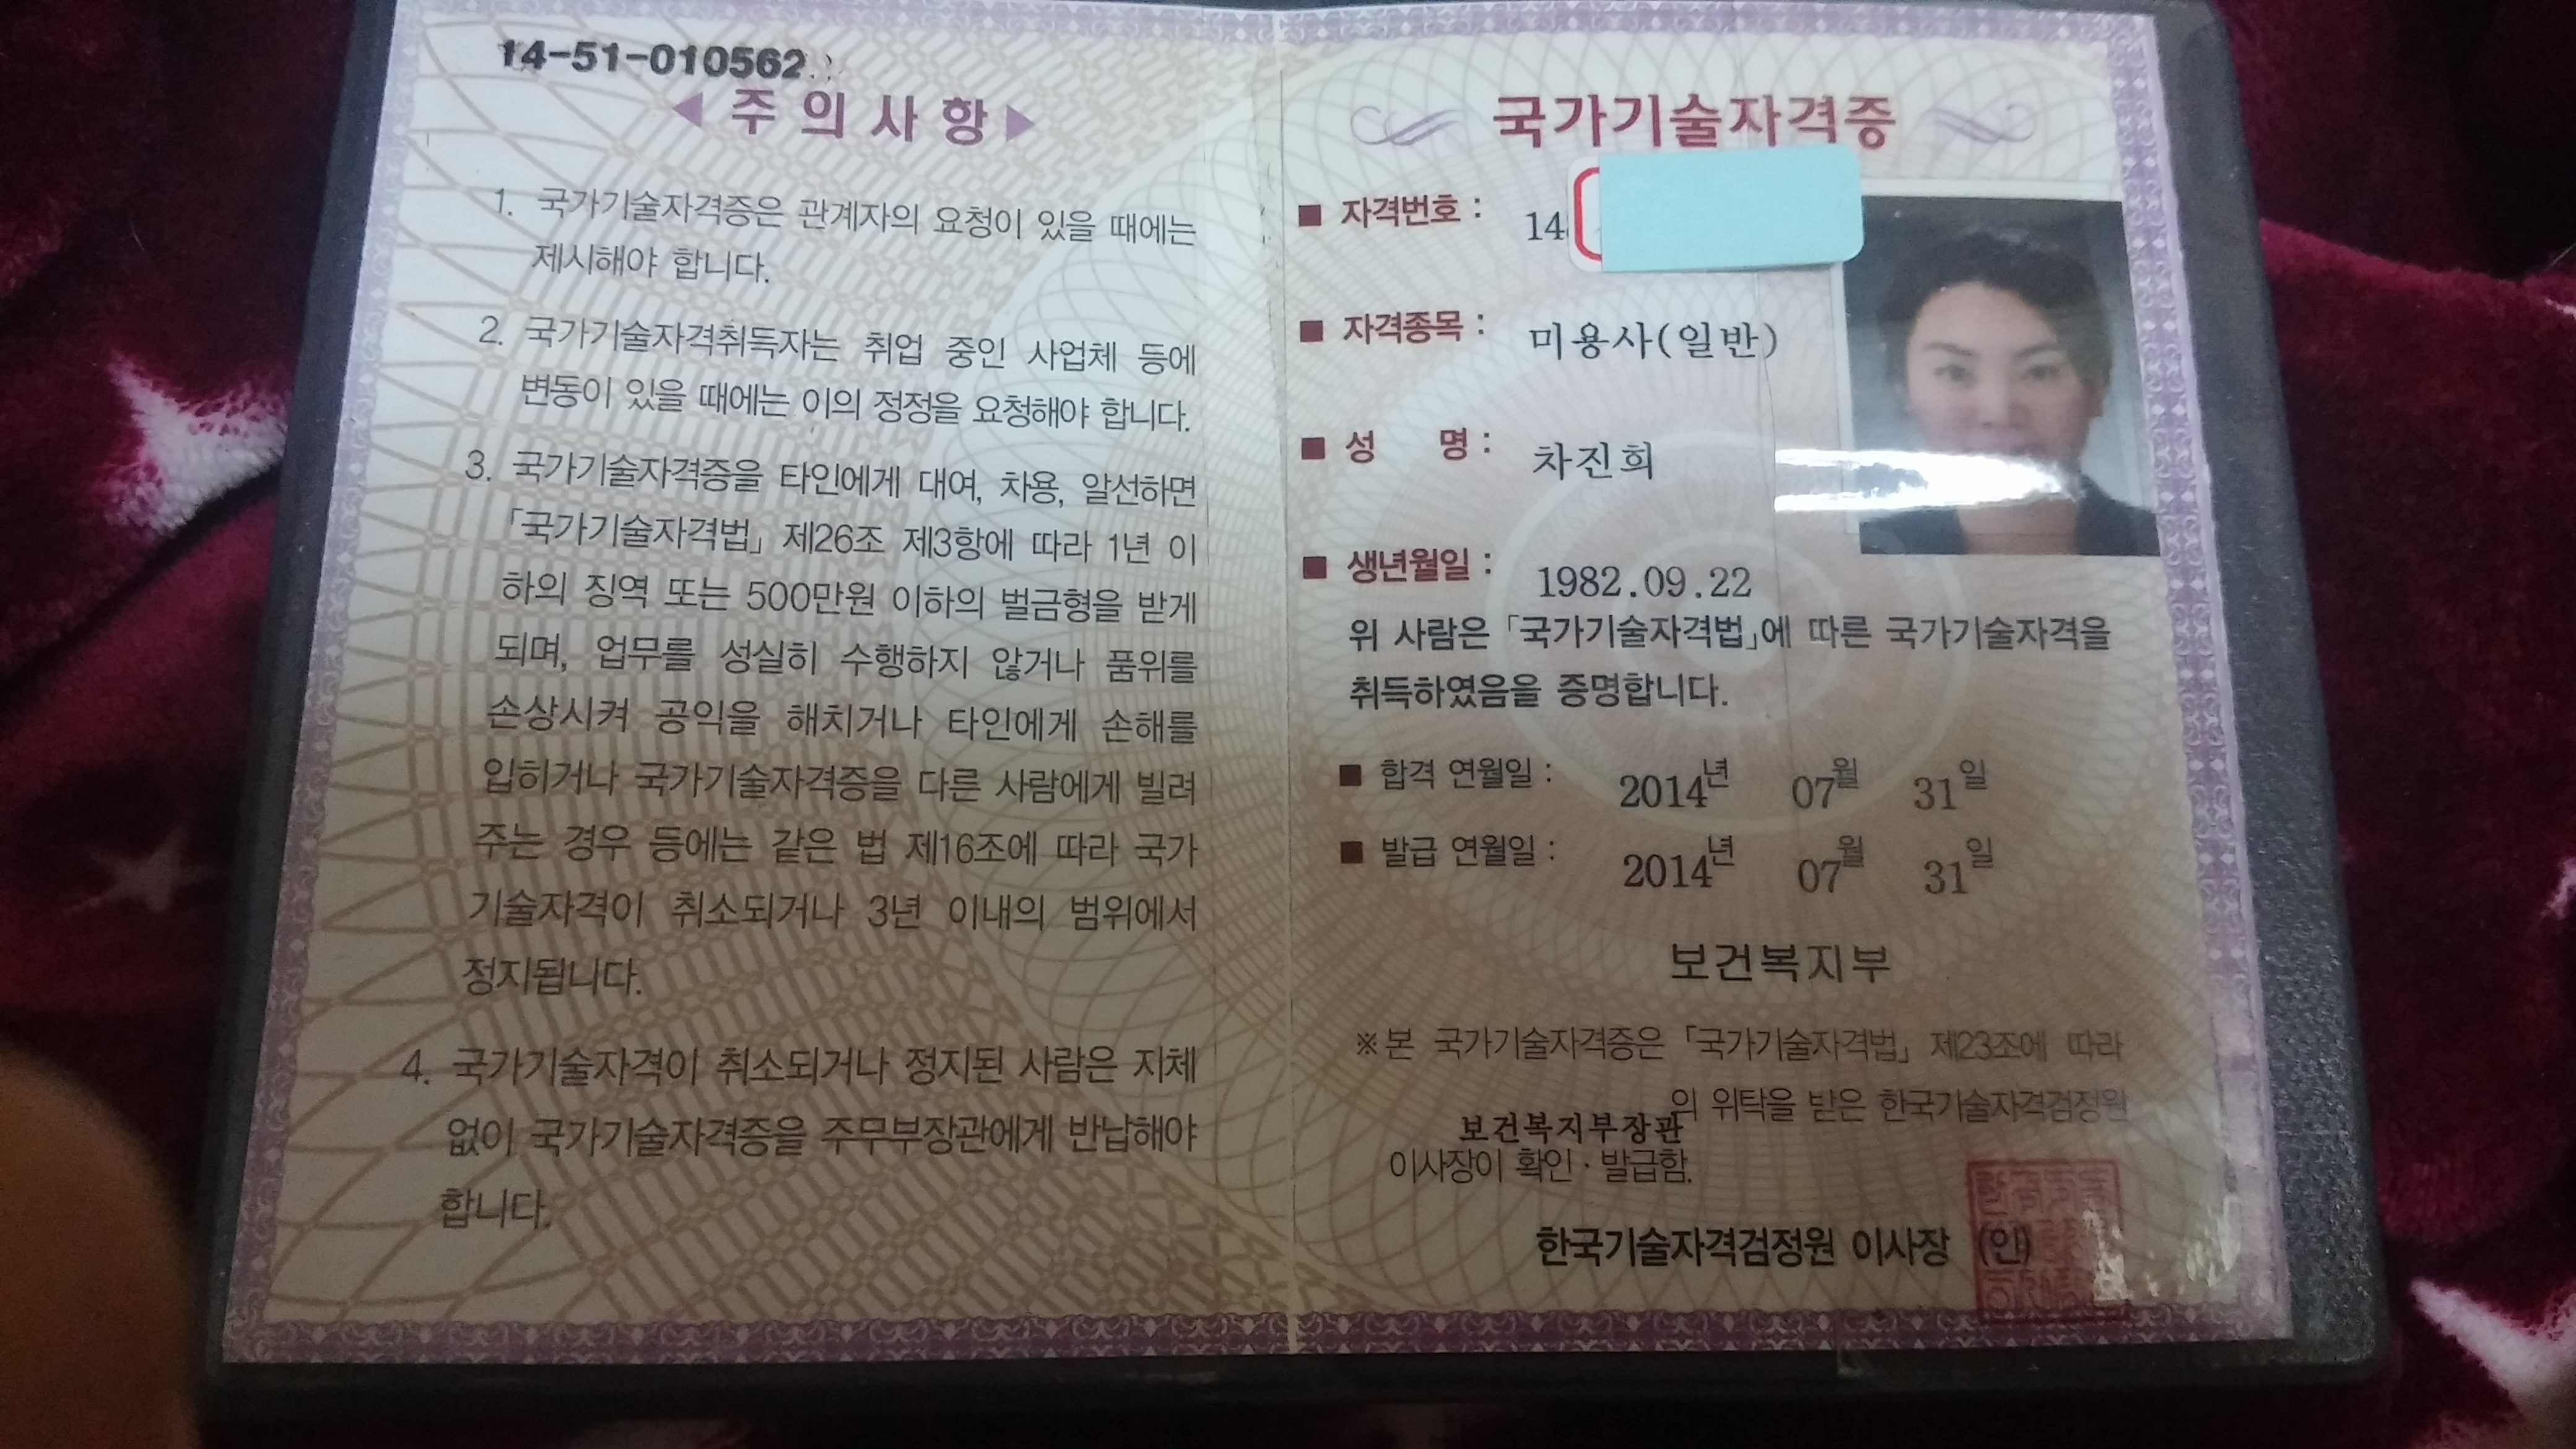 14-51-010562
◀ 주 의 사 항 ▶
1. 국가기술자격증은 관계자의 요청이 있을 때에는
제시해야 합니다.
2. 국가기술자격취득자는 취업 중인 사업체 등에
변동이 있을 때에는 이의 정정을 요청해야 합니다.
3. 국가기술자격증을 타인에게 대여, 차용, 알선하면
「국가기술자격법」 제26조 제3항에 따라 1년 이
하의 징역 또는 500만원 이하의 벌금형을 받게
되며, 업무를 성실히 수행하지 않거나 품위를
손상시켜 공익을 해치거나 타인에게 손해를
입히거나 국가기술자격증을 다른 사람에게 빌려
주는 경우 등에는 같은 법 제16조에 따라 국가
기술자격이 취소되거나 3년 이내의 범위에서
정지됩니다.
4. 국가기술자격이 취소되거나 정지된 사람은 지체
없이 국가기술자격증을 주무부장관에게 반납해야
합니다.
국가기술자격증
■ 자격번호 : 14
■ 자격종목 : 미용사(일반)
■ 성 명 : 차진희
■ 생년월일 : 1982.09.22
위 사람은 「국가기술자격법」에 따른 국가기술자격을
취득하였음을 증명합니다.
■ 합격 연월일 : 2014년 07월 31일
■ 발급 연월일 : 2014년 07월 31일
보건복지부
※본 국가기술자격증은 「국가기술자격법」 제23조에 따라
보건복지부장관의 위탁을 받은 한국기술자격검정원
이사장이 확인·발급함.
한국기술자격검정원 이사장 (인)